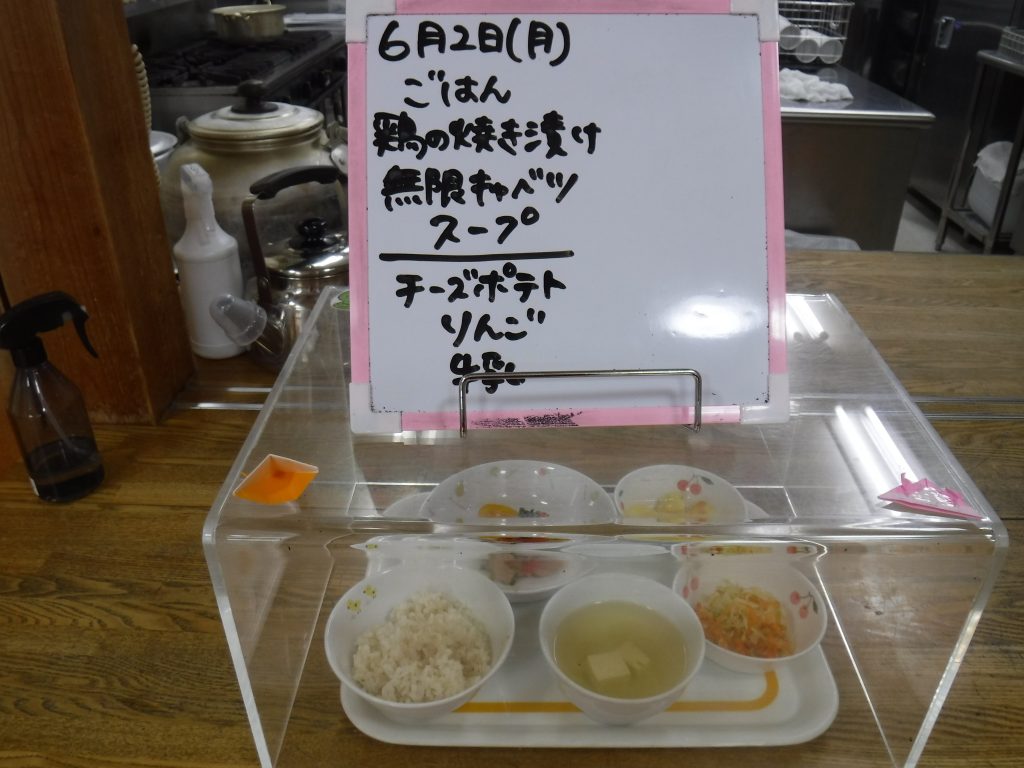 6月2日(月)
ごはん
鶏の焼き漬け
無限キャベツ
スープ
チーズポテト
りんご
牛乳